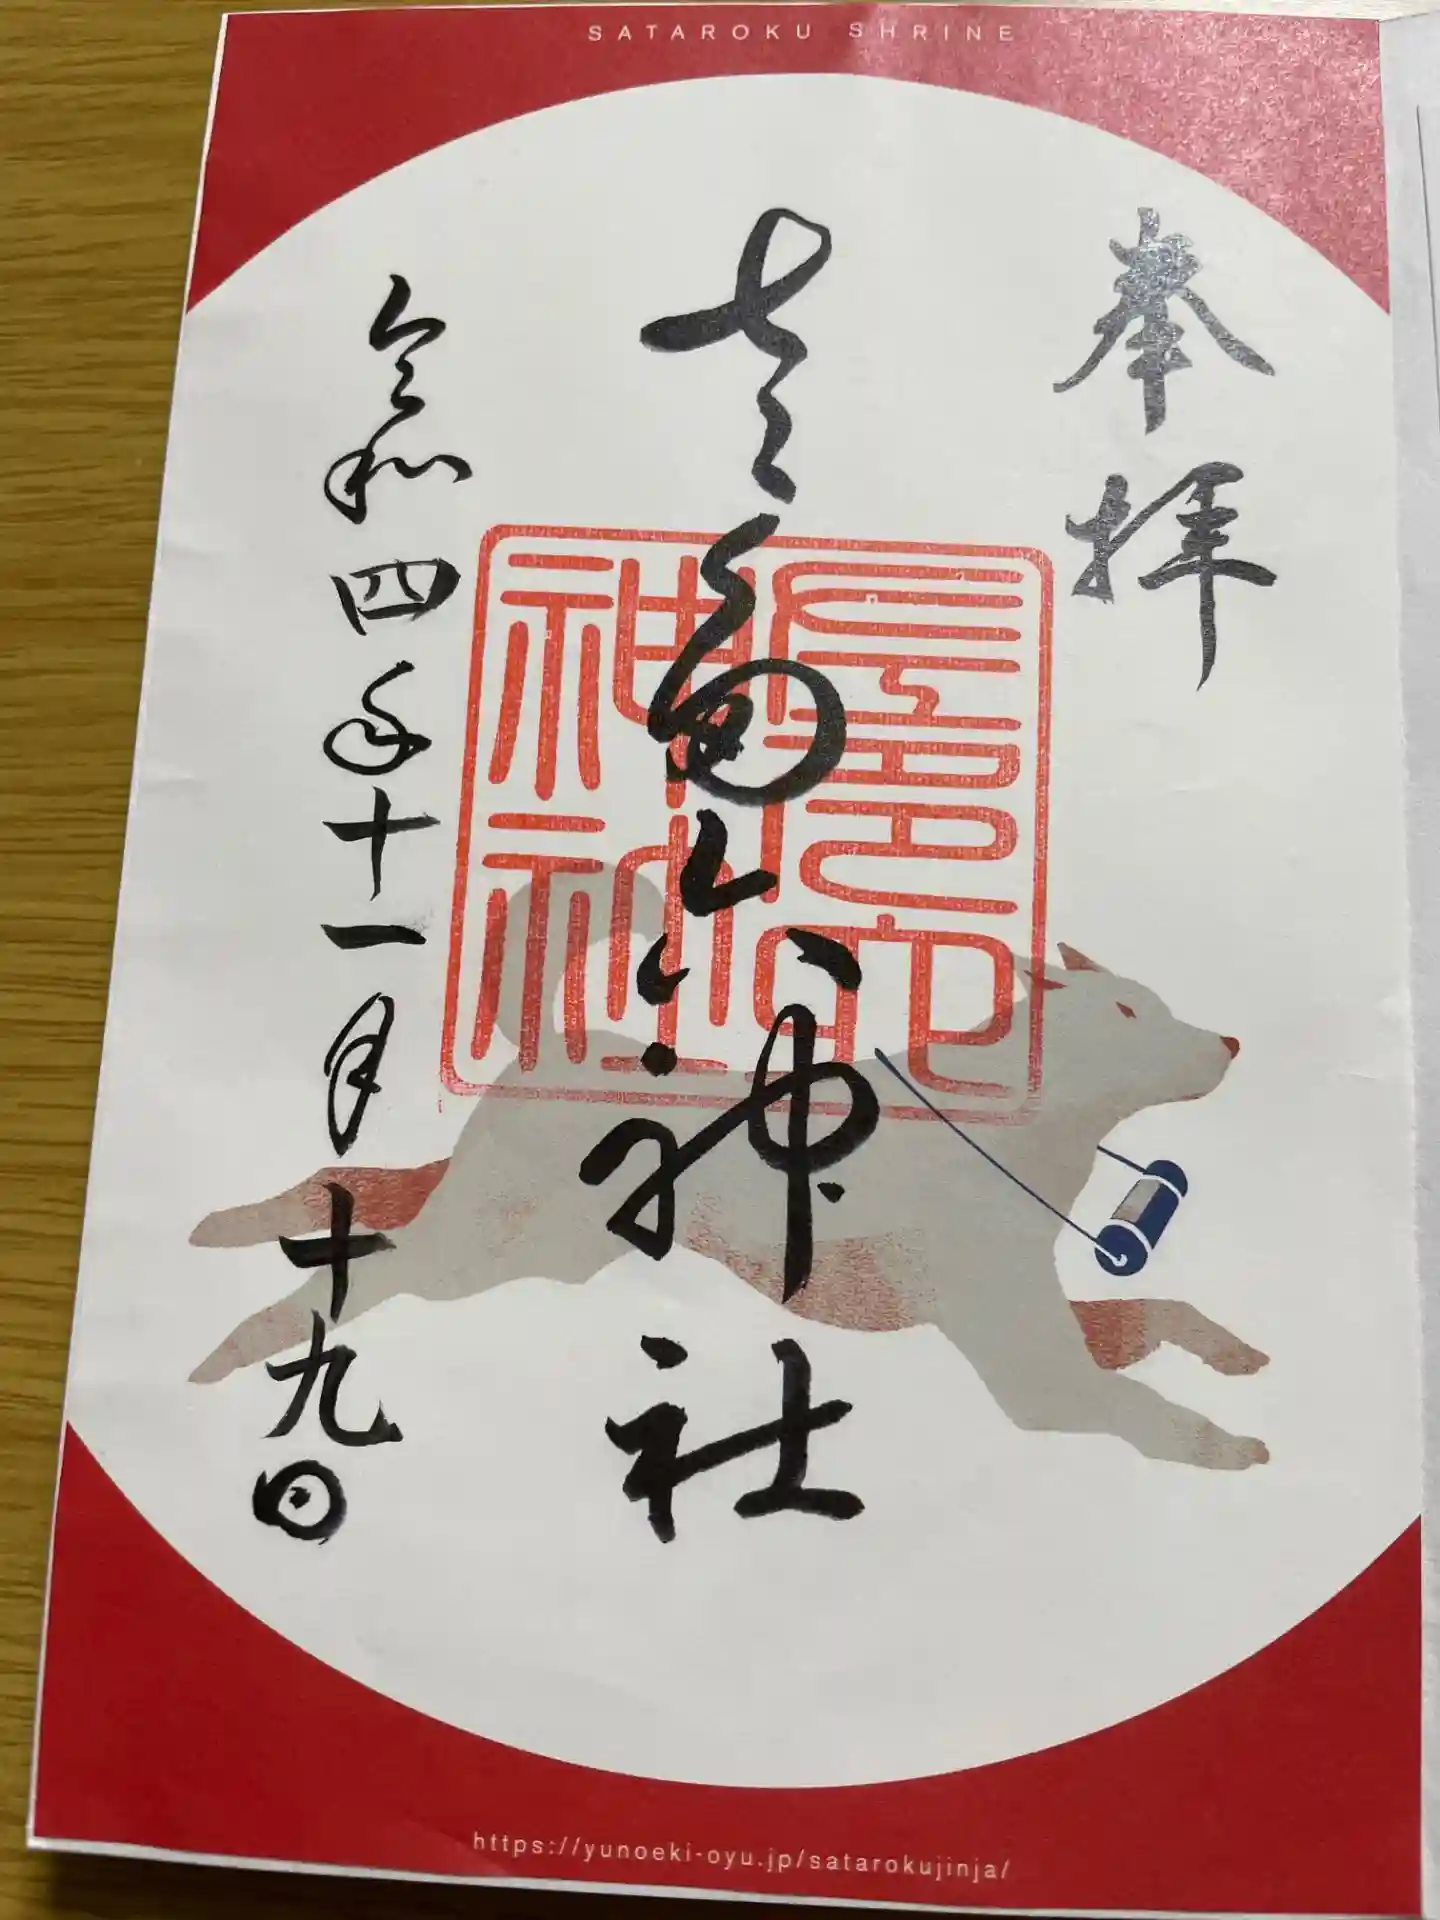 SATAROKU SHRINE
奉拝
神社
令和四年十一月十九日
神社
https://yunoeki-oyu.jp/satarokujinja/